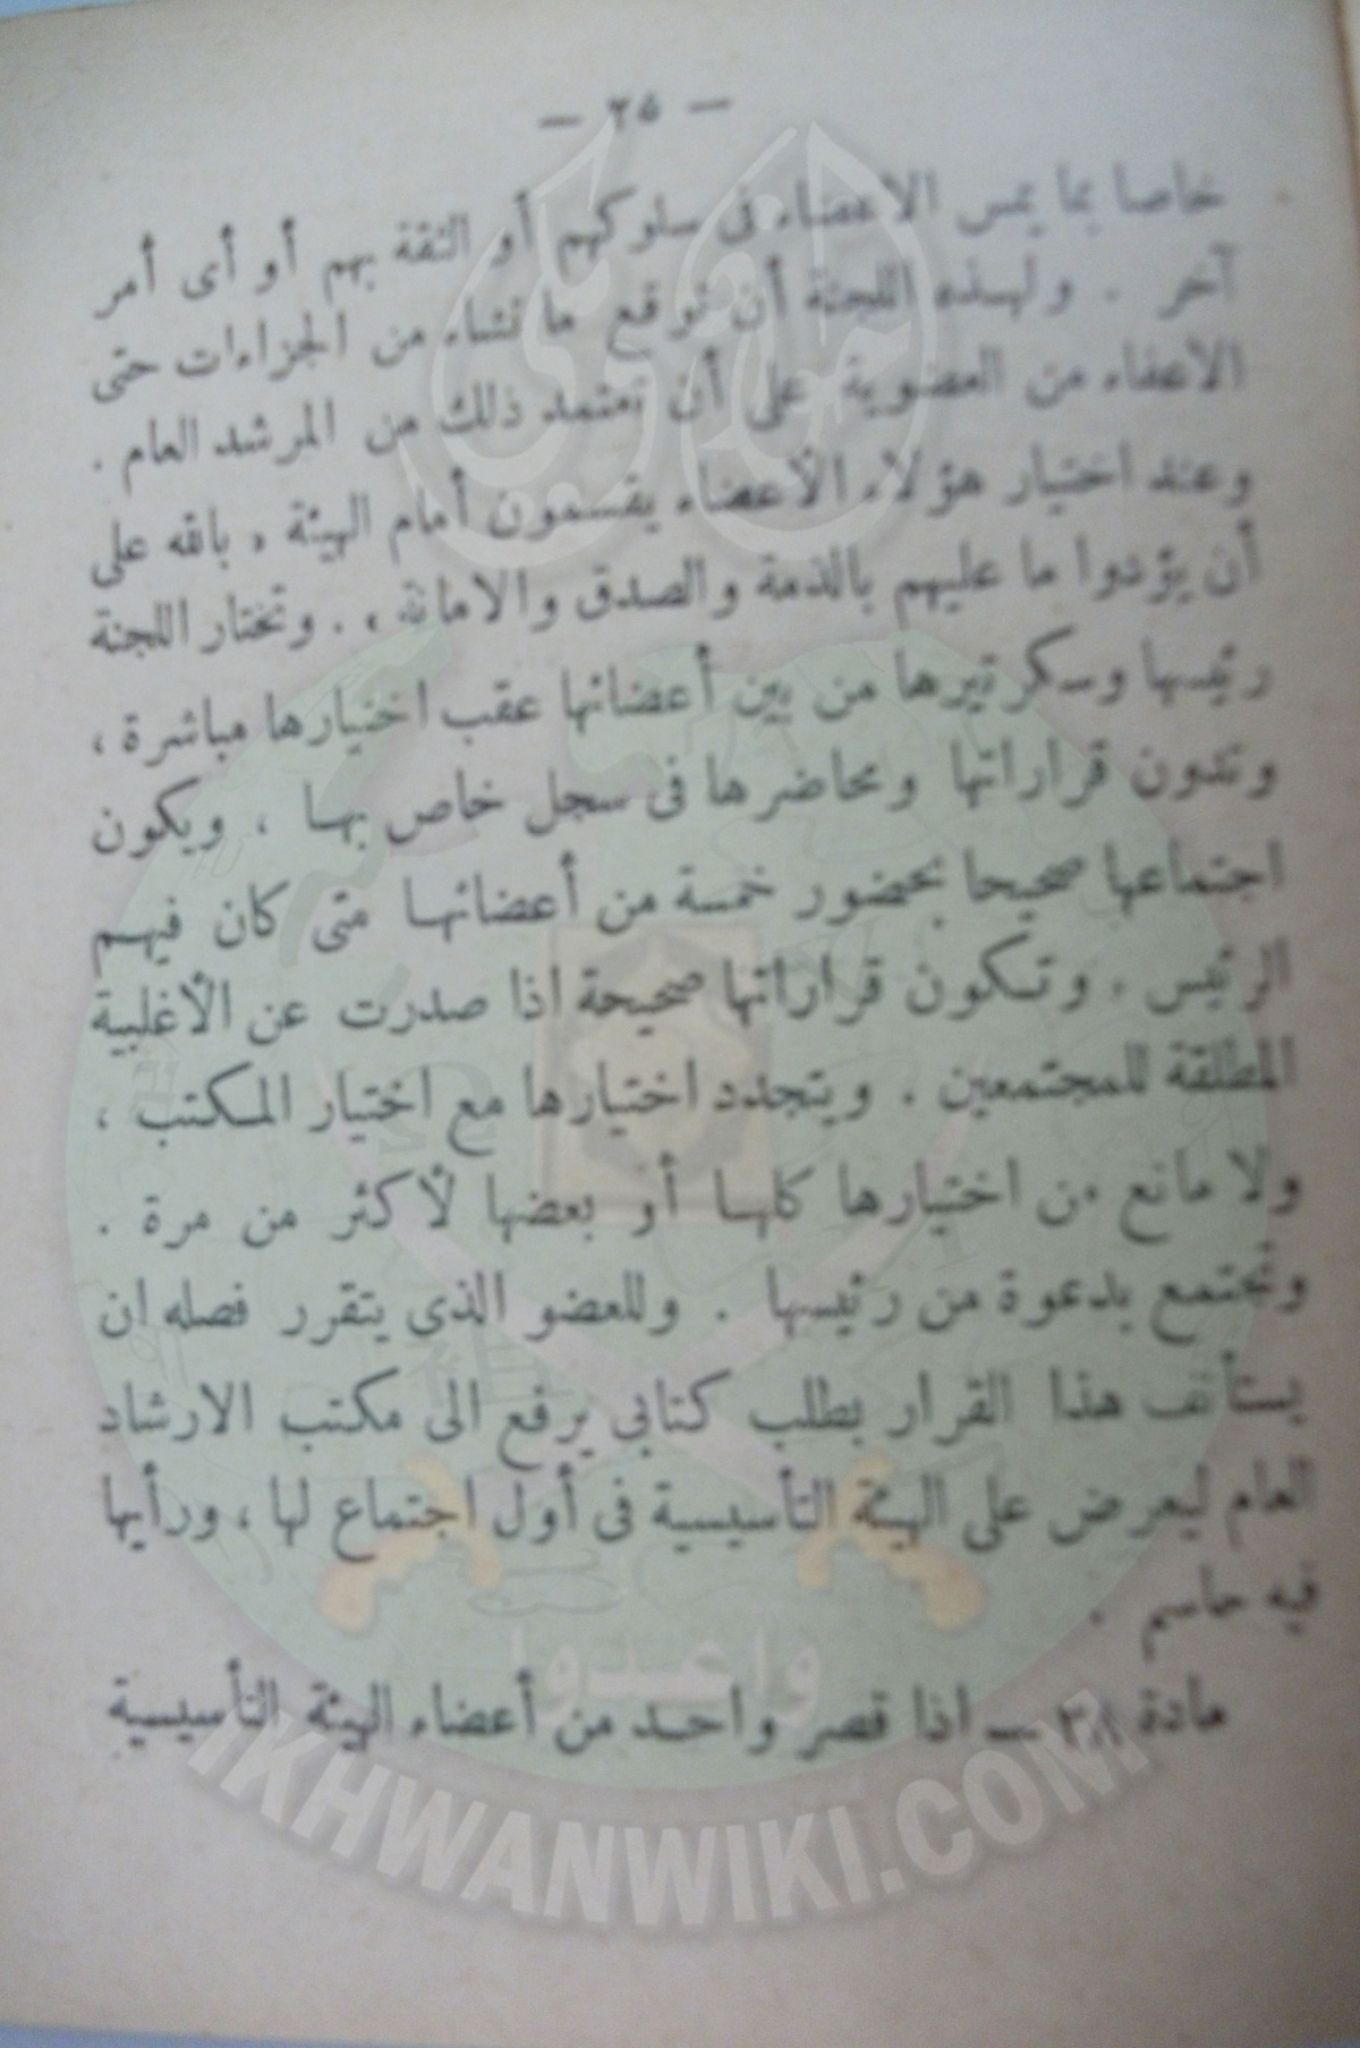 — ٢٥ —
خاصا بما يمس الاعضاء فى سلوكهم أو الثقة بهم أو أى أمر
آخر . ولهذه اللجنة أن توقع ما تشاء من الجزاءات حتى
الاعفاء من العضوية على أن تعتمد ذلك من المرشد العام .
وعند اختيار هؤلاء الأعضاء يقسمون أمام الهيئة « بالله على
أن يؤدوا ما عليهم بالذمة والصدق والامانة » . وتختار اللجنة
رئيسها وسكرتيرها من بين أعضائها عقب اختيارها مباشرة ،
وتدون قراراتها ومحاضرها فى سجل خاص بها ، ويكون
اجتماعها صحيحا بحضور خمسة من أعضائها متى كان فيهم
الرئيس . وتكون قراراتها صحيحة اذا صدرت عن الأغلبية
المطلقة للمجتمعين . ويتجدد اختيارها مع اختيار المكتب ،
ولا مانع من اختيارها كلها أو بعضها لأكثر من مرة .
وتجتمع بدعوة من رئيسها . وللعضو الذى يتقرر فصله ان
يستأنف هذا القرار بطلب كتابى يرفع الى مكتب الارشاد
العام ليعرض على الهيئة التأسيسية فى أول اجتماع لها ، ورأيها
فيه حاسم .
مادة ٣٨ — اذا قصر واحد من أعضاء الهيئة التأسيسية
وأعدوا
IKHWANWIKI.COM